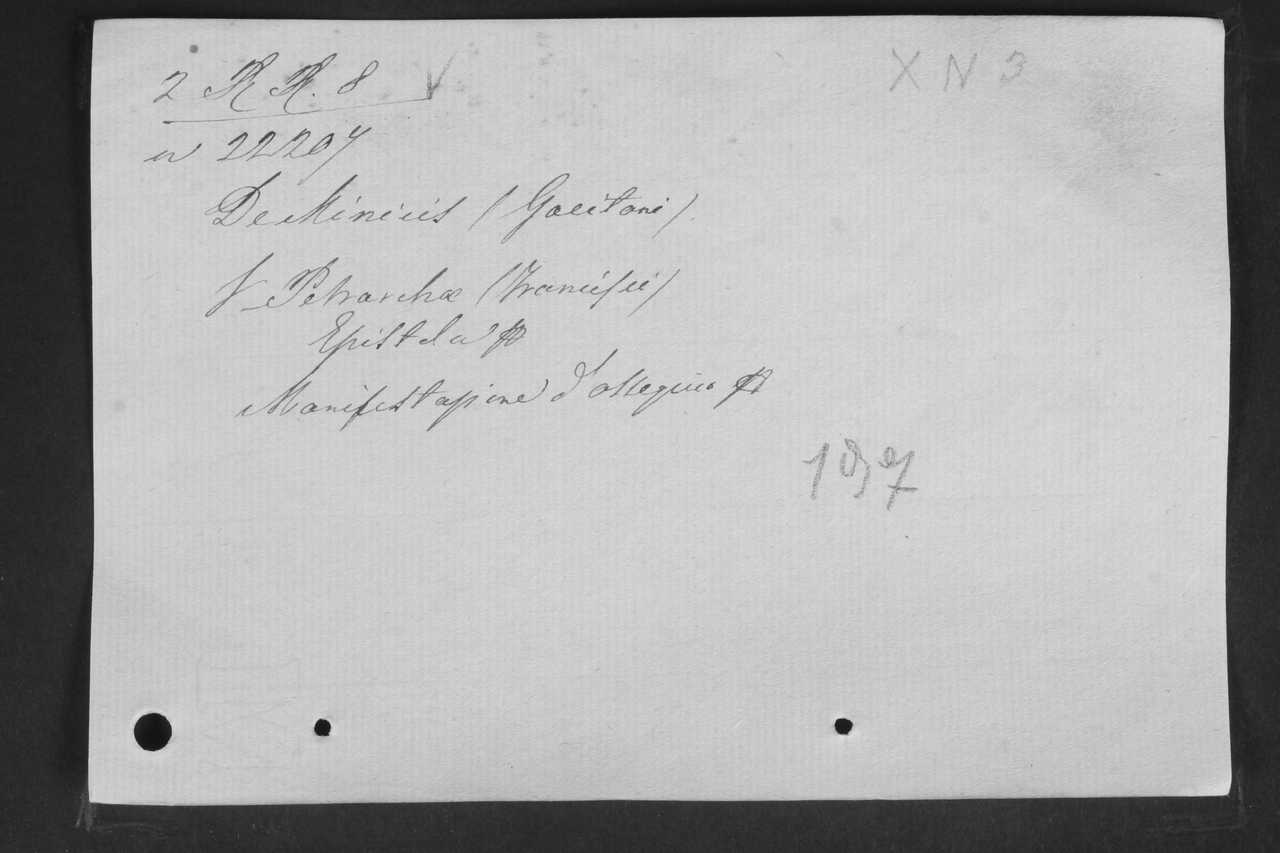 2 R R. 8
X N 3
n 22207
DeMinicis (Gaetano)
V Petrarchæ (Francisci)
Epistola
Manifestazione d'ossequio